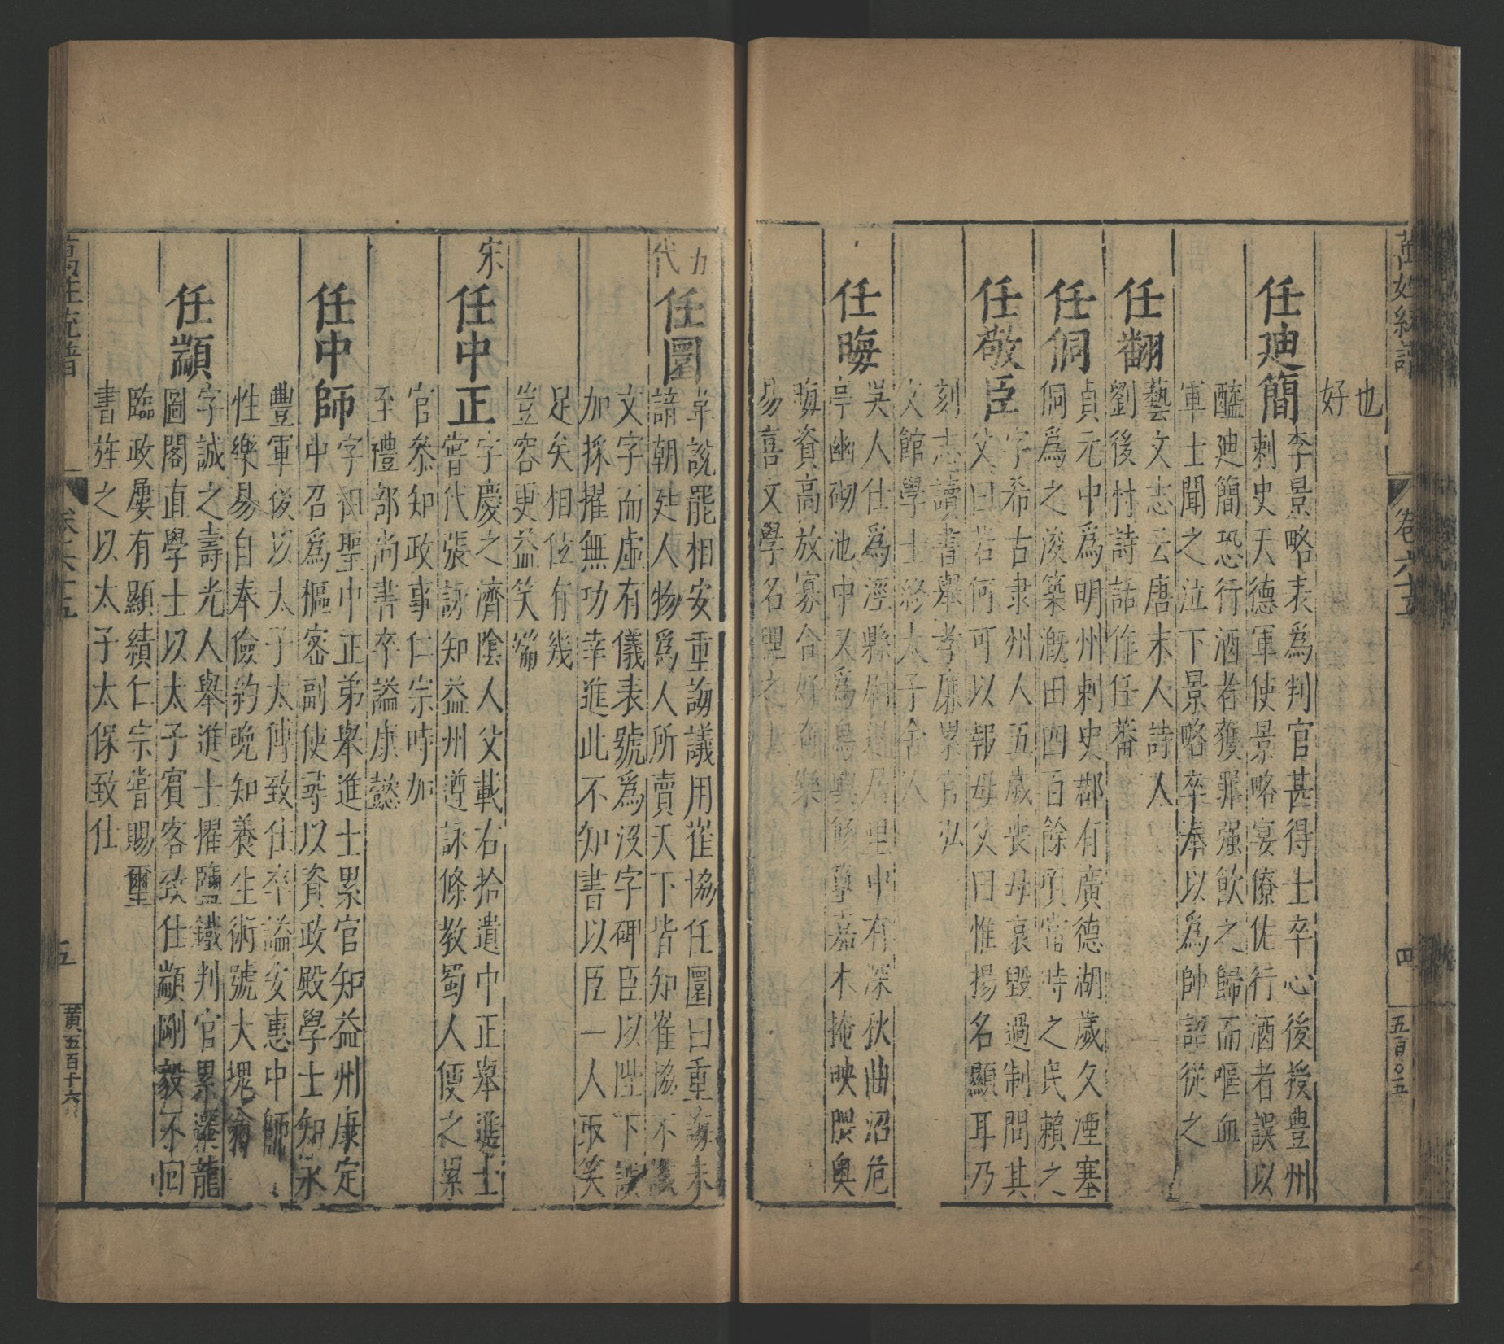 萬姓統譜
卷六十五
四
五百〇五
也
好
任迪簡
李景略表爲判官甚得士卒心後授豊州
刺史天德軍使景略宴僚佐行酒者誤以
醯廸簡恐行酒者獲罪强飮之歸而嘔血
軍士聞之泣下景略卒奉以爲帥詔從之
任翻
藝文志云唐末人詩人
劉後村詩話作任蕃
任侗
貞元中爲明州刺史郡有廣德湖歲久湮塞
侗爲之浚築漑田四百餘頃當時之民賴之
任敬臣
字希古隶州人五歲喪母哀毀過制問其
父曰若何可以報母父曰惟揚名顯耳乃
刻志讀書舉孝廉累官弘
文館學士終太子舍人
任晦
吳人仕爲涇縣尉退居里中有深林曲沼危
亭幽砌池中又爲島嶼修篁嘉木掩映隈奥
晦資高放寡合好奇樂
易喜文學名理之
五代
任圜
革說罷相安重誨議用崔協任圜曰重誨未
諳朝廷人物爲人所賣天下皆知崔協不識
文字而虛有儀表號爲沒字碑臣以陛下誤
加採擢無功幸進此不知書以臣一人取笑
足矣相位有幾
豈容更益笑端
宋
任中正
字慶之濟陰人父載右拾遺中正舉進士
嘗代張詠知益州遵詠條教蜀人便之累
官叅知政事仁宗時加
至禮部尚書卒謚康懿
任中師
字祖聖中正弟舉進士累官知益州康定
中召爲樞密副使尋以資政殿學士知永
豊軍後以太子太傅致仕卒謚安惠中師
性樂易自奉儉約晚知養生術號大塊翁
任顓
字誠之壽光人舉進士擢鹽鐵判官累遷龍
圖閣直學士以太子賓客致仕顓剛毅不囘
臨政屢有顯績仁宗嘗賜璽
書旌之以太子太保致仕
萬姓統譜
卷六十五
五
黄五百十六